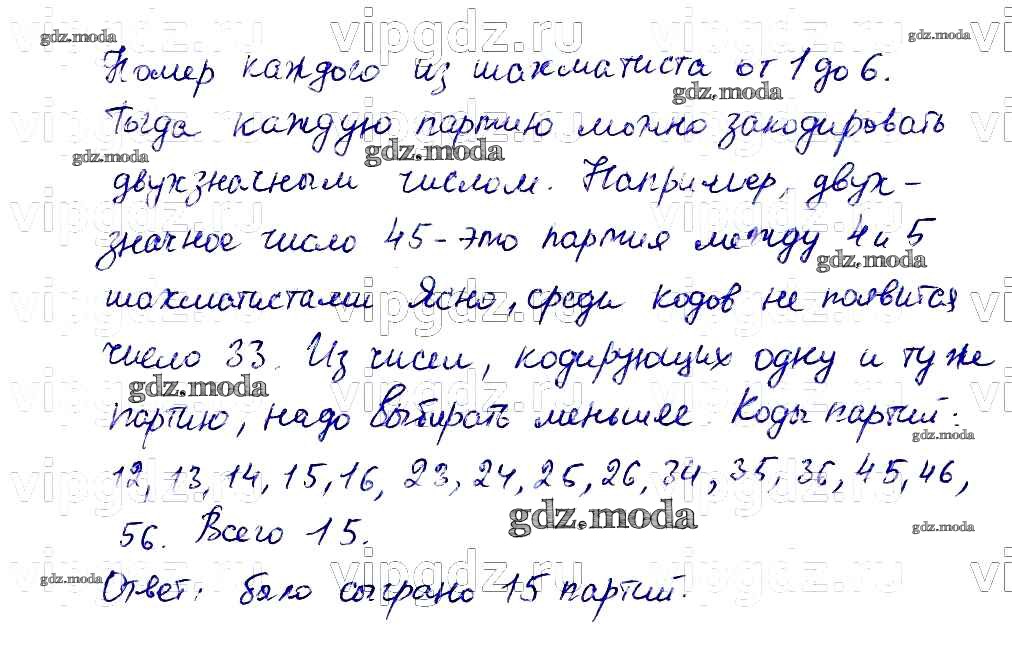 Номер каждого из шахматиста от 1 до 6.
Тогда каждую партию можно закодировать
двухзначным числом. Например, двух-
значное число 45 - это партия между 4 и 5
шахматистами Ясно, среди кодов не появится
число 33. Из чисел, кодирующих одну и ту же
партию, надо выбирать меньшее. Коды партий:
12, 13, 14, 15, 16, 23, 24, 25, 26, 34, 35, 36, 45, 46,
56. Всего 15.
Ответ: было сыграно 15 партий.
vipgdz.ru
gdz.moda